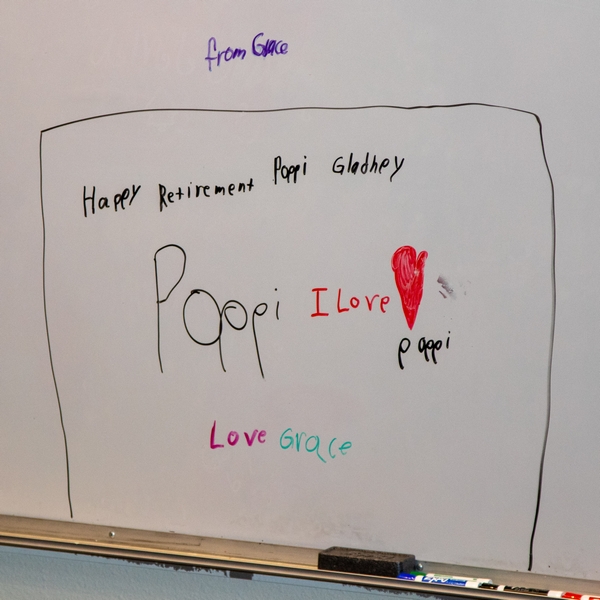 from Grace
Happy Retirement Poppi Gladney
Poppi I Love
poppi
Love Grace